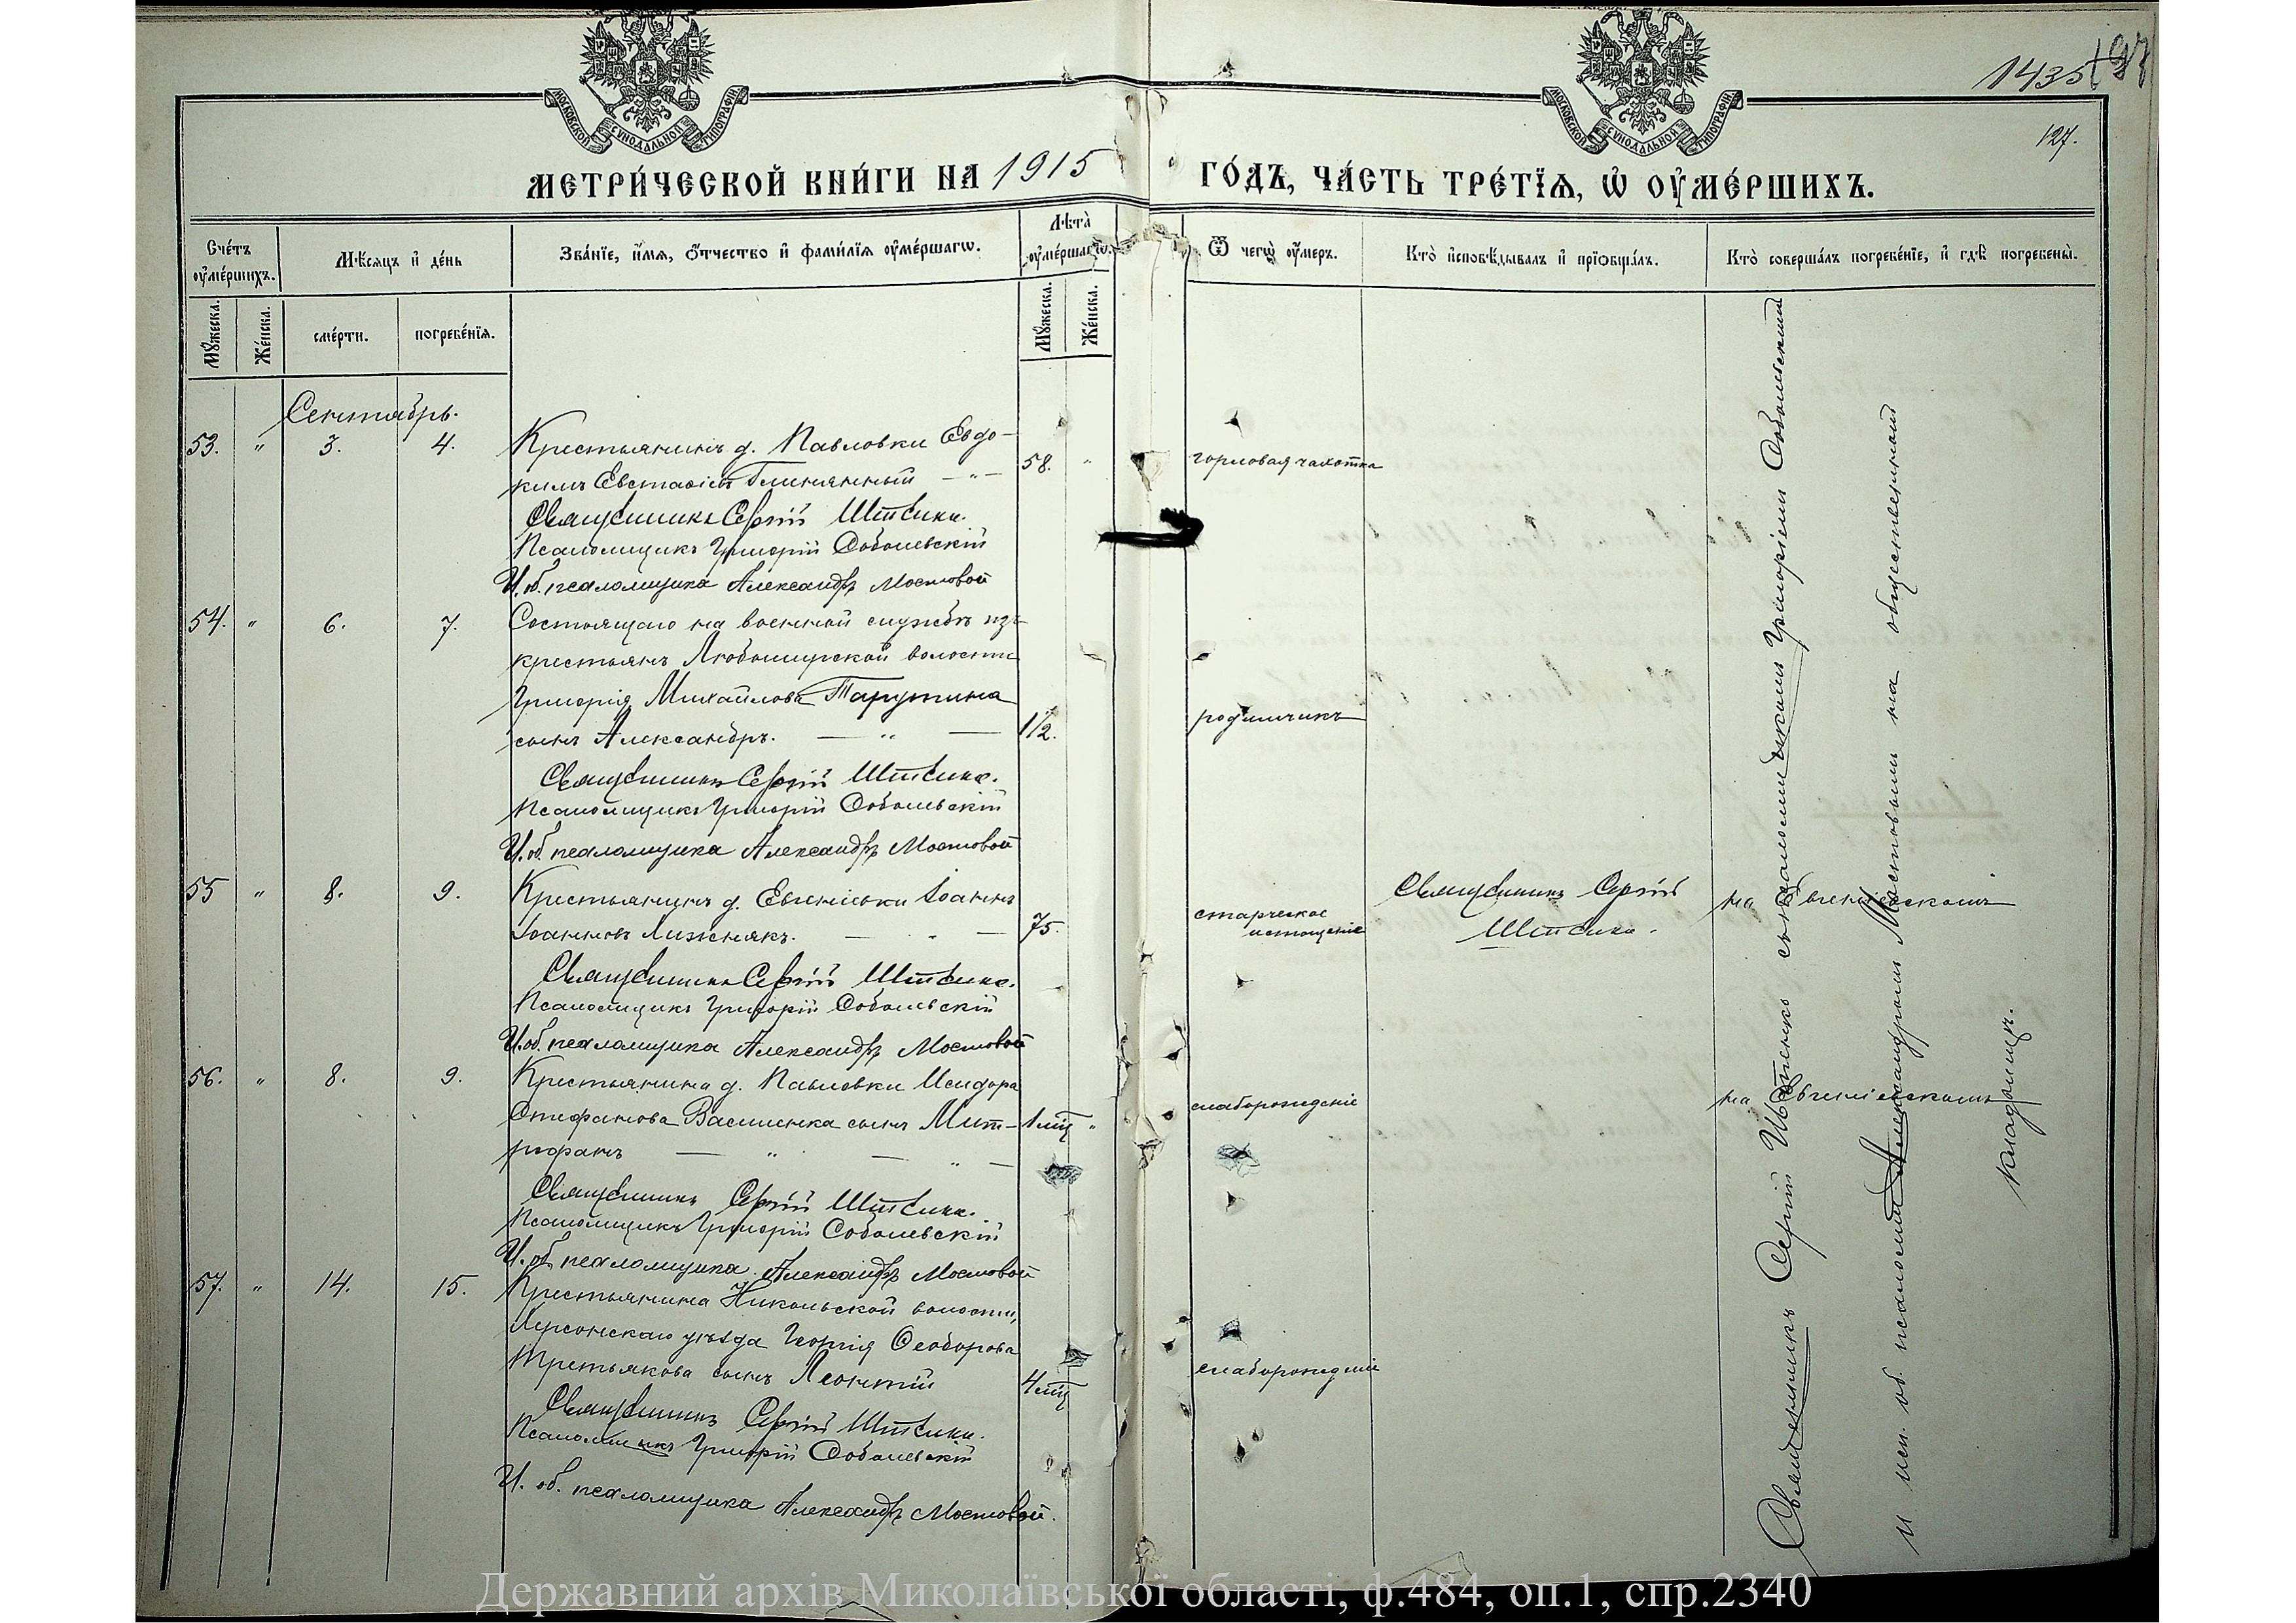 МОСКОВСКОЙ СѴНОДАЛЬНОЙ ТИПОГРАФІИ
МОСКОВСКОЙ СѴНОДАЛЬНОЙ ТИПОГРАФІИ
1435
127.
МЕТРИ́ЧЕСКОЙ КНИ́ГИ НА 1915 ГО́ДЪ, ЧА́СТЬ ТРЕ́ТЇѦ, Ѡ҆ ОУ҆МЕ́РШИХЪ.
Сче́тъ оу҆ме́ршихъ.
Мѣ́сяцъ и҆ де́нь
Зва́нїе, и҆́мѧ, ѻ҆́тчество и҆ фами́лїѧ оу҆ме́ршагѡ.
Лѣ́та оу҆ме́ршагѡ.
Ѿ чегѡ̀ оу҆́меръ.
Кто̀ и҆сповѣ́дывалъ и҆ прїѡбща́лъ.
Кто̀ соверша́лъ погребе́нїе, и҆ гдѣ̀ погребены̀.
Мꙋ́жеска.
Же́нска.
сме́рти.
погребе́нїѧ.
Мꙋ́жеска.
Же́нска.
Сентябрь.
53. " 3. 4. Крестьянинъ д. Павловки Евдо-
кимъ Евстафіевъ Глинянный — " — 58. " горловая чахотка
Священникъ Сергій
Псаломщикъ Григорій Соболевскій
И. об. псаломщика Александръ Мостовой
54. " 6. 7. Состоящаго на военной службѣ изъ
крестьянъ Любомирской волости
Григорія Михайлова Тарутина
сынъ Александръ. — " — 1½. родимчикъ
Священникъ Сергій
Псаломщикъ Григорій Соболевскій
И. об. псаломщика Александръ Мостовой
55 " 8. 9. Крестьянинъ д. Евгеніевки Іоаннъ
Іоанновъ Лизнякъ. — " — 75. старческое истощеніе Священникъ Сергій на Евгеніевскомъ
Священникъ Сергій
Псаломщикъ Григорій Соболевскій
И. об. псаломщика Александръ Мостовой
56. " 8. 9. Крестьянина д. Павловки Исидора
Стефанова Василенка сынъ Мит- 1 мц " слаборожденіе на Евгеніевскомъ
рофанъ — " — " —
Священникъ Сергій
Псаломщикъ Григорій Соболевскій
И. об. псаломщика Александръ Мостовой
57. " 14. 15. Крестьянина Никольской волости,
Херсонскаго уѣзда Георгія Феодорова
Третьякова сынъ Леонтій 4 мц слаборожденіе
Священникъ Сергій
Псаломщикъ Григорій Соболевскій
И. об. псаломщика Александръ Мостовой.
Священникъ Сергій съ псаломщикомъ Григоріемъ Соболевскимъ
и исп. об. псаломщ. Александромъ Мостовымъ на общественномъ
кладбищѣ.
Державний архів Миколаївської області, ф.484, оп.1, спр.2340